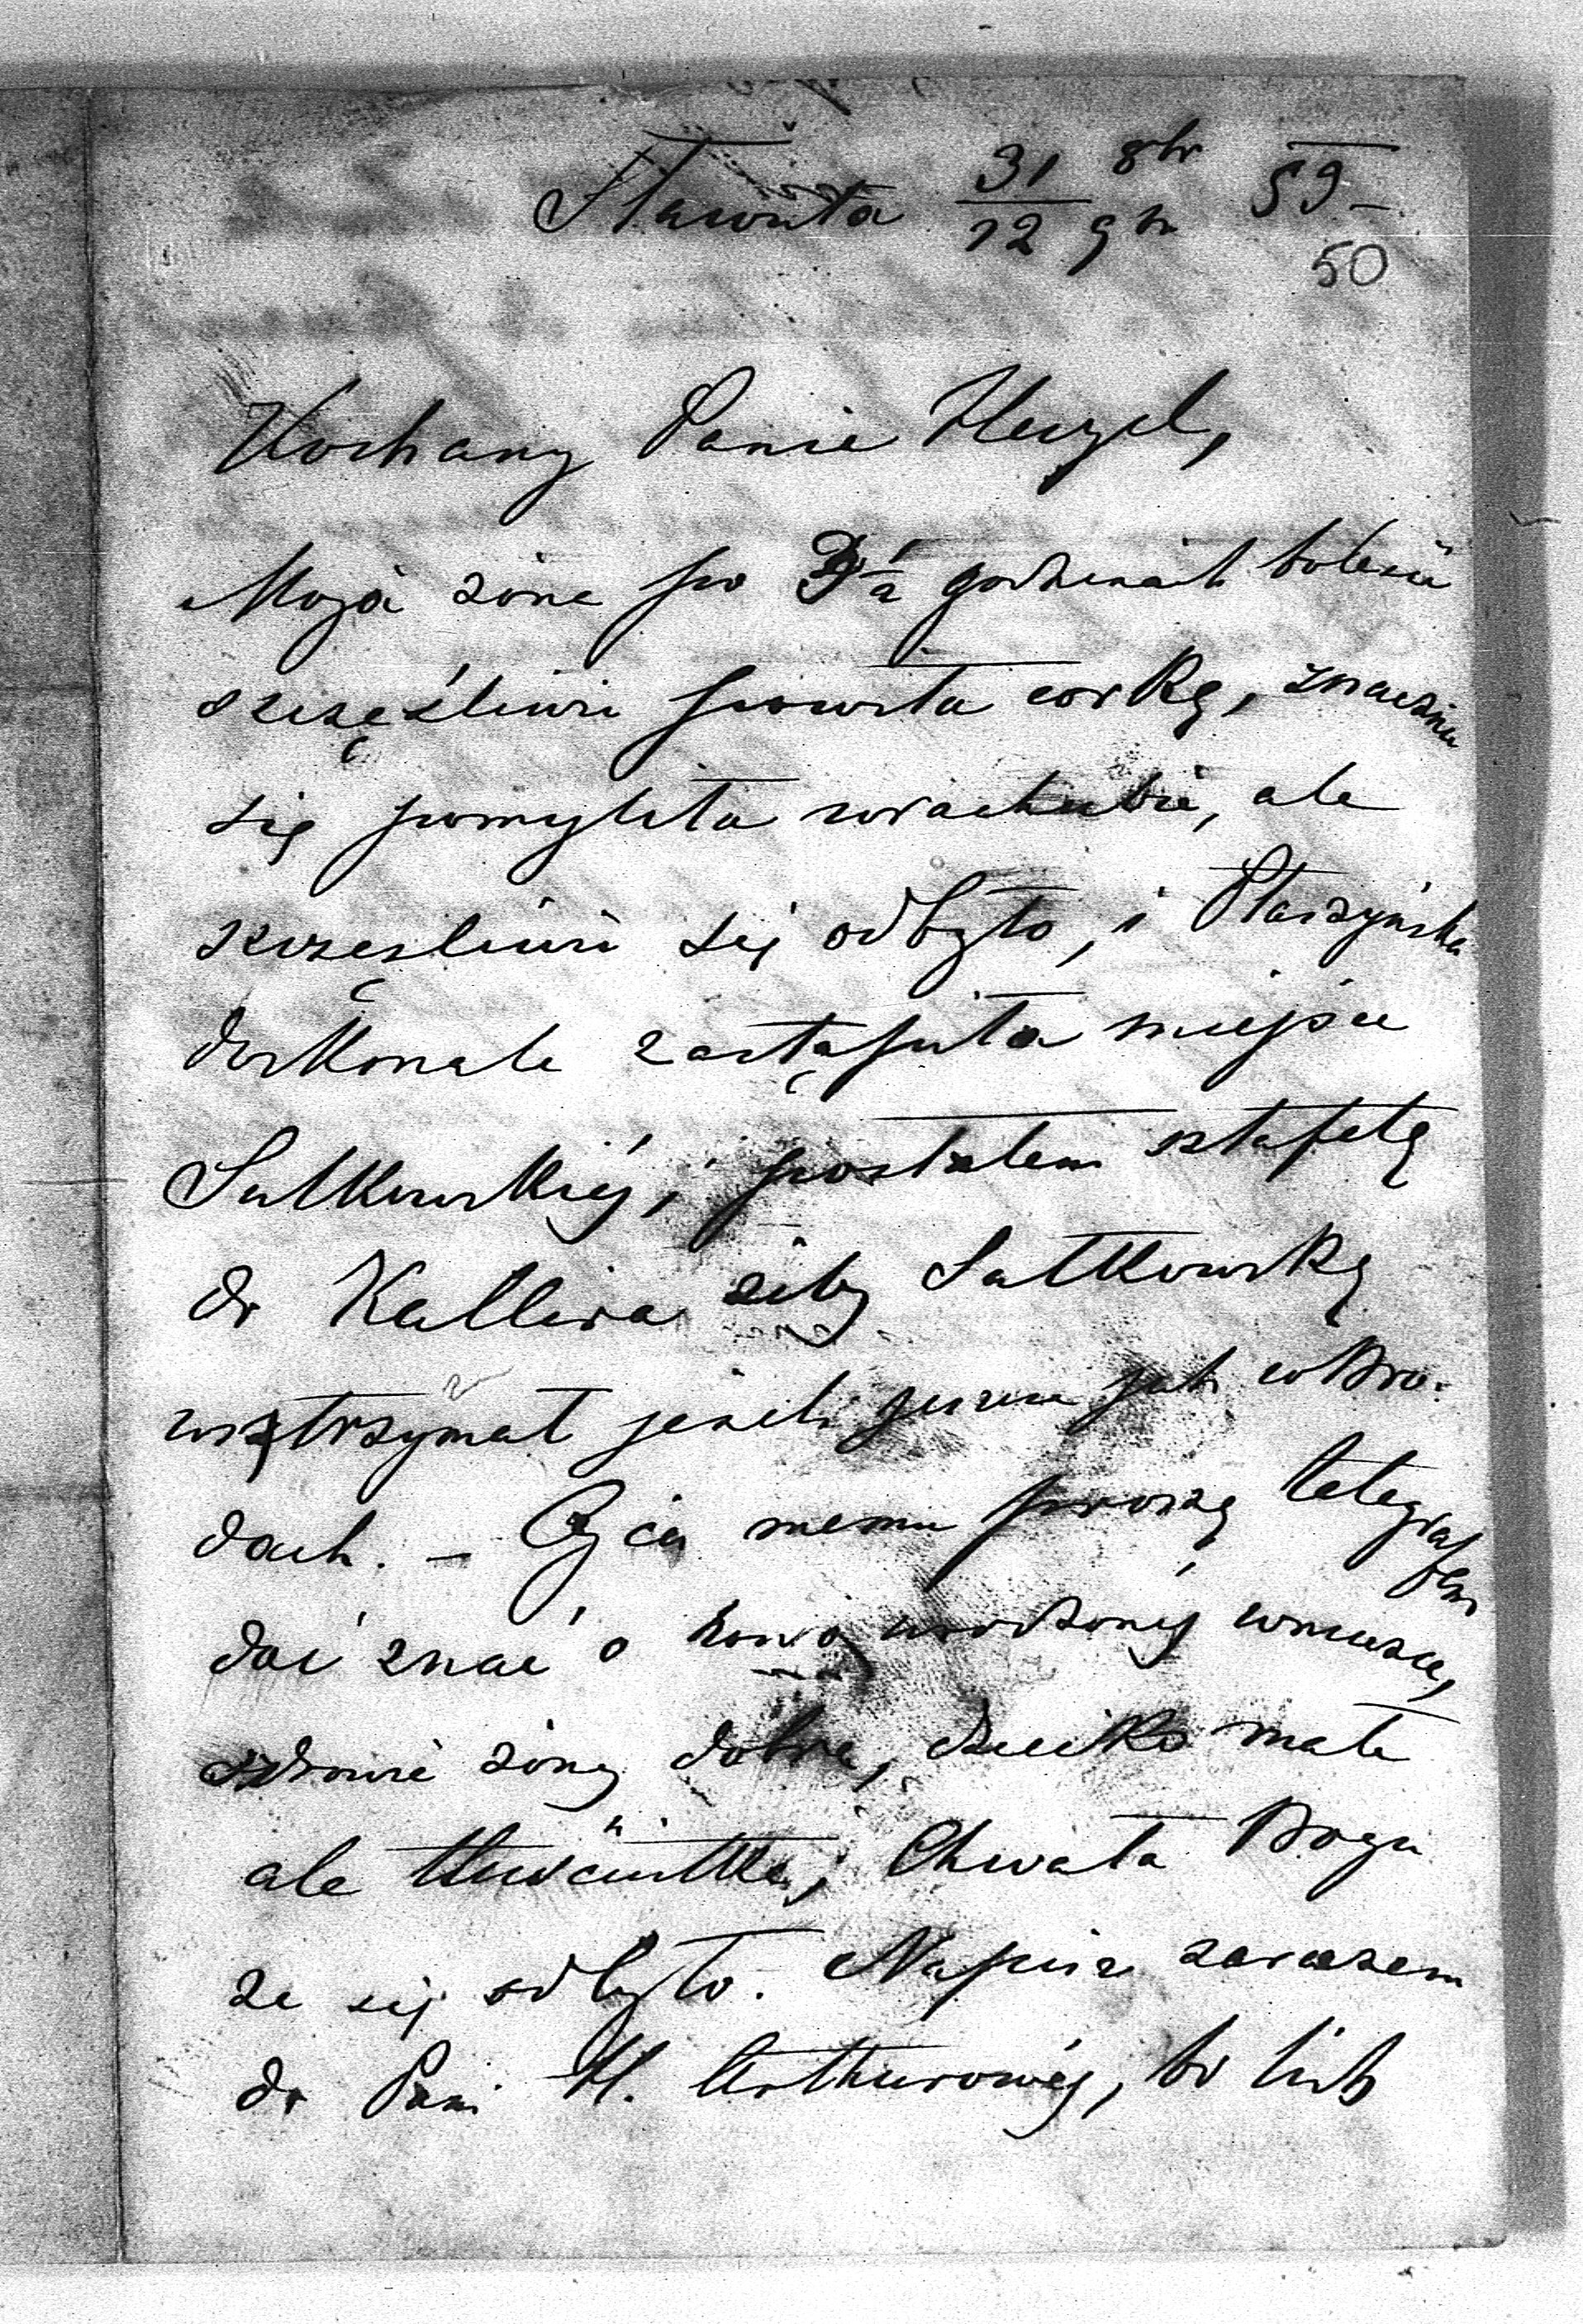 Sławuta 31 8br 59-
12 9br
50
Kochany Panie Henzel,
Moja żona po godzinach boleści
szczęśliwie powiła corkę, znacznie
się pomyliła w rachubie, ale
szczęśliwie się odbyło, i Staszyńska
doskonale zastąpiła miejsce
Sutkowskiéj, i posłałem sztafetę
do Kallera żeby Sutkowskę
wstrzymał jeżeli jeszcze jest w Bro-
dach. - Ojcu memu proszę telegrafem
dać znać o nowo urodzonéj wnuczce,
zdrowie żony dobre, dziecko małe
ale tłuściutkie, Chwała Bogu
że się odbyło. Napisz zarazem
do Pani H. Arthurowéj, bo list